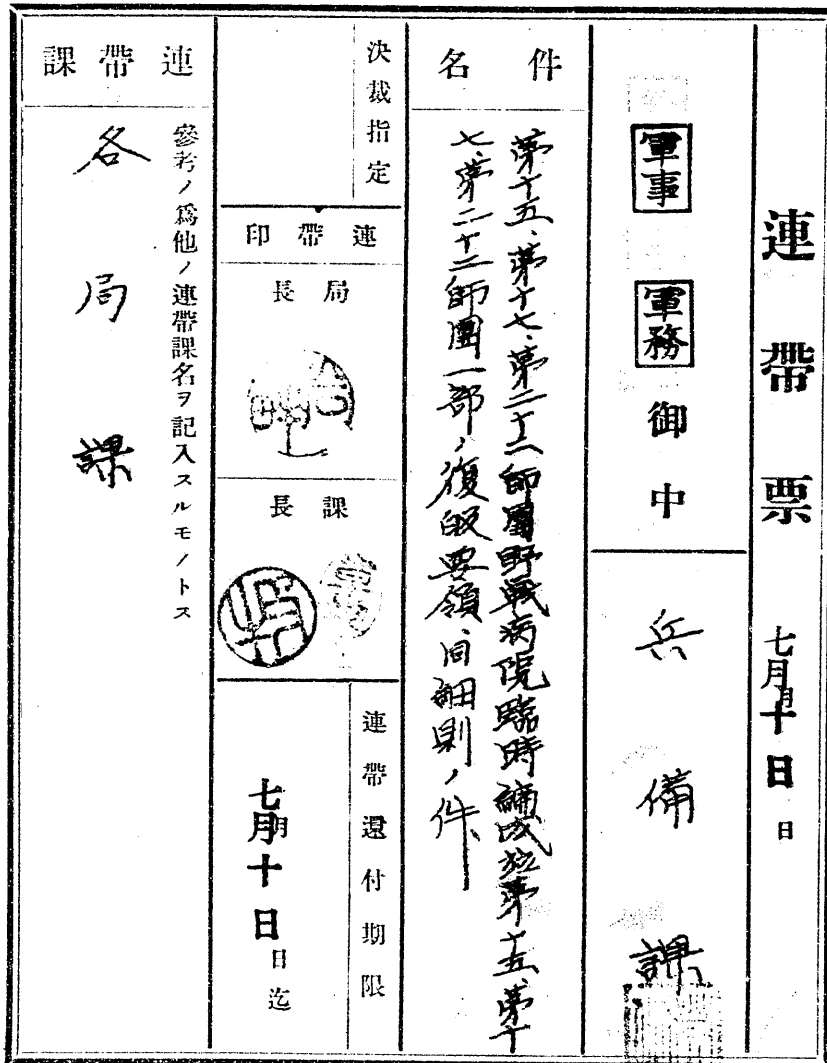 連帶票 七月十日
軍事 軍務 御中
兵備課
件名
第十五、第十七、第二十二師團野戰病院臨時編成並第十五、第十
七、第二十二師團一部ノ復歸要領、同細則ノ件
決裁指定
連帶印
局長
課長
連帶還付期限
七月十日迄
連帶課
參考ノ爲他ノ連帶課名ヲ記入スルモノトス
各局課